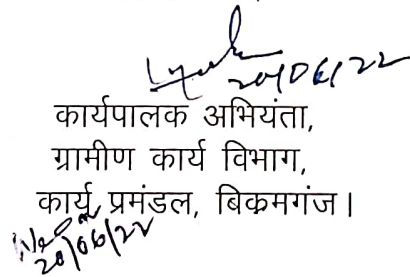 20/06/22
कार्यपालक अभियंता,
ग्रामीण कार्य विभाग,
कार्य प्रमंडल, बिक्रमगंज।
20/06/22